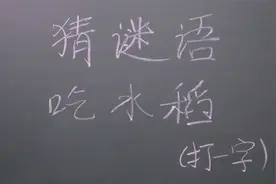 猜谜语
吃水稻
(打一字)